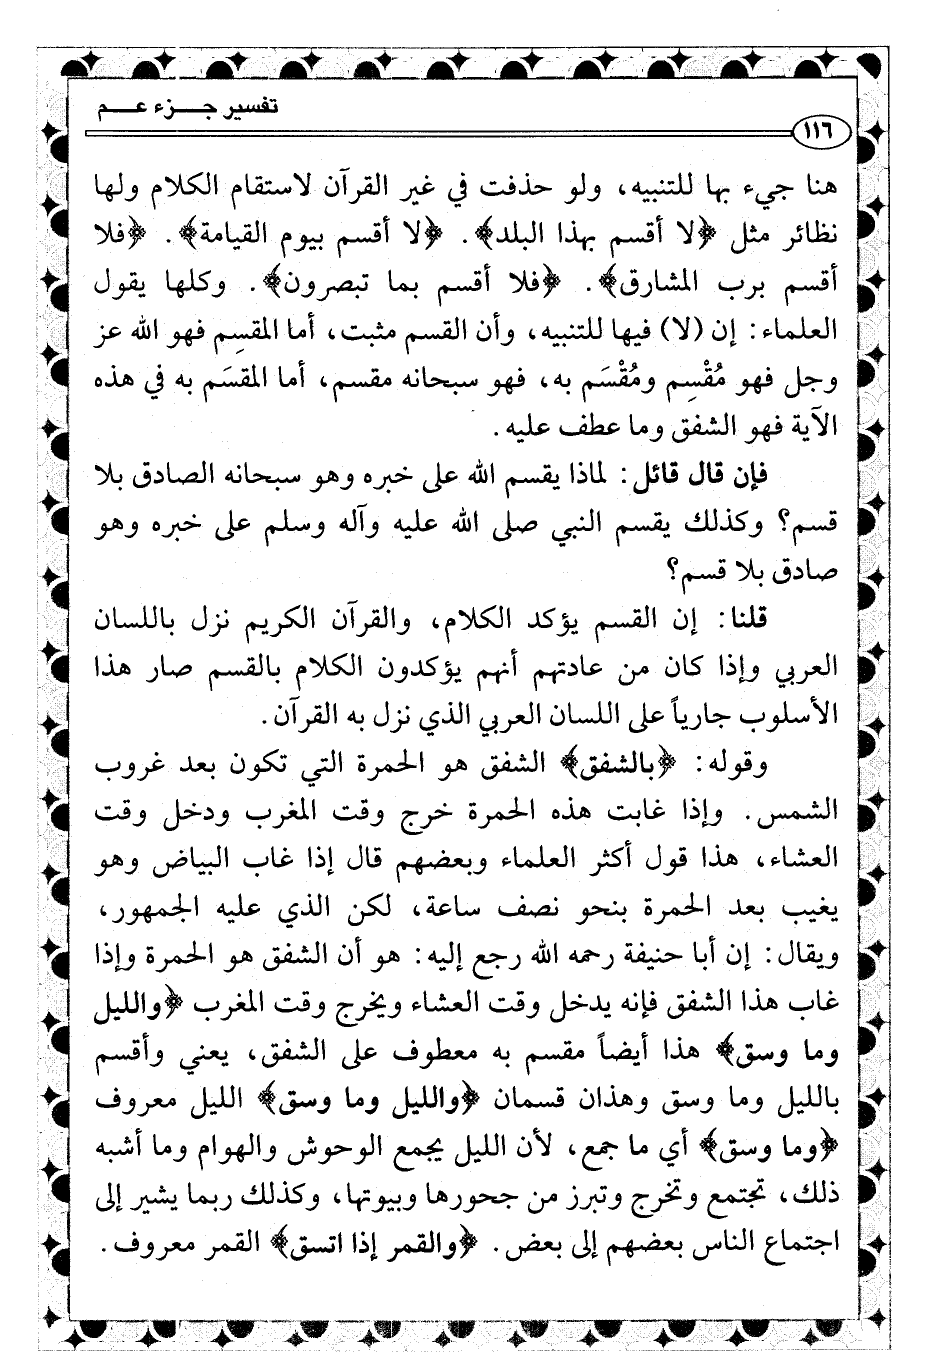 تفسير جـــزء عـــم
١١٦
هنا جيء بها للتنبيه، ولو حذفت في غير القرآن لاستقام الكلام ولها
نظائر مثل ﴿لا أقسم بهذا البلد﴾. ﴿لا أقسم بيوم القيامة﴾. ﴿فلا
أقسم برب المشارق﴾. ﴿فلا أقسم بما تبصرون﴾. وكلها يقول
العلماء: إن (لا) فيها للتنبيه، وأن القسم مثبت، أما المقسِم فهو الله عز
وجل فهو مُقْسِم ومُقْسَم به، فهو سبحانه مقسم، أما المقسَم به في هذه
الآية فهو الشفق وما عطف عليه.
فإن قال قائل: لماذا يقسم الله على خبره وهو سبحانه الصادق بلا
قسم؟ وكذلك يقسم النبي صلى الله عليه وآله وسلم على خبره وهو
صادق بلا قسم؟
قلنا: إن القسم يؤكد الكلام، والقرآن الكريم نزل باللسان
العربي وإذا كان من عادتهم أنهم يؤكدون الكلام بالقسم صار هذا
الأسلوب جارياً على اللسان العربي الذي نزل به القرآن.
وقوله: ﴿بالشفق﴾ الشفق هو الحمرة التي تكون بعد غروب
الشمس. وإذا غابت هذه الحمرة خرج وقت المغرب ودخل وقت
العشاء، هذا قول أكثر العلماء وبعضهم قال إذا غاب البياض وهو
يغيب بعد الحمرة بنحو نصف ساعة، لكن الذي عليه الجمهور،
ويقال: إن أبا حنيفة رحمه الله رجع إليه: هو أن الشفق هو الحمرة وإذا
غاب هذا الشفق فإنه يدخل وقت العشاء ويخرج وقت المغرب ﴿والليل
وما وسق﴾ هذا أيضاً مقسم به معطوف على الشفق، يعني وأقسم
بالليل وما وسق وهذان قسمان ﴿والليل وما وسق﴾ الليل معروف
﴿وما وسق﴾ أي ما جمع، لأن الليل يجمع الوحوش والهوام وما أشبه
ذلك، تجتمع وتخرج وتبرز من جحورها وبيوتها، وكذلك ربما يشير إلى
اجتماع الناس بعضهم إلى بعض. ﴿والقمر إذا اتسق﴾ القمر معروف.